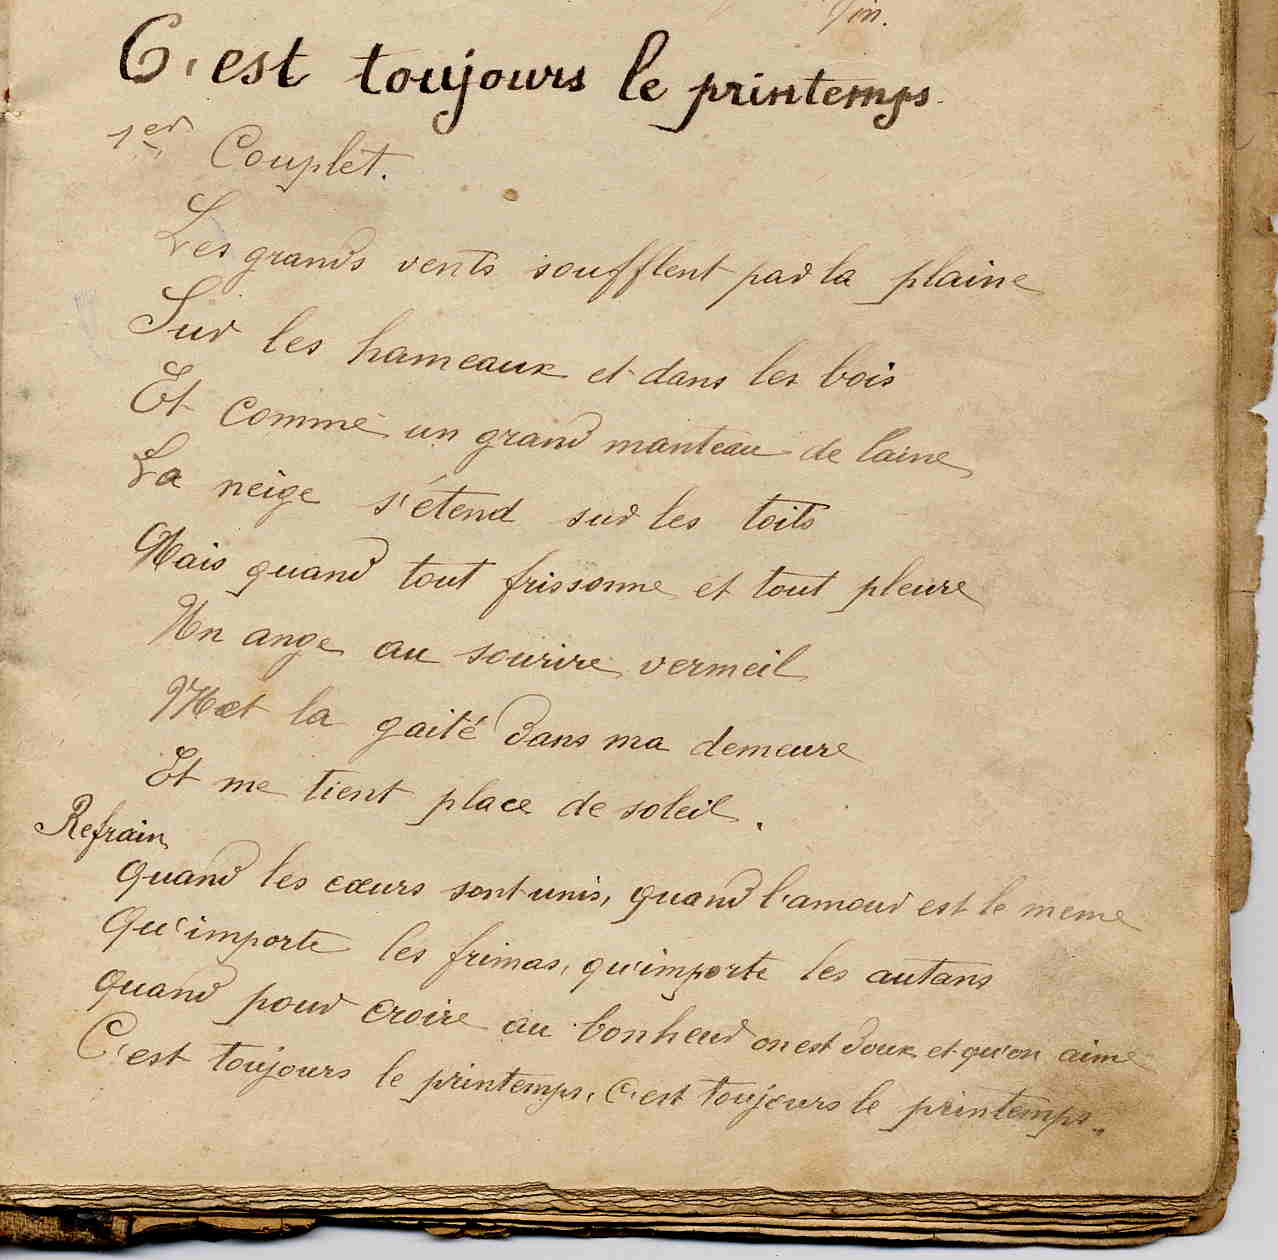 Fin.
C'est toujours le printemps.
1er Couplet.
Les grands vents soufflent par la plaine
Sur les hameaux et dans les bois
Et comme un grand manteau de laine
La neige s'étend sur les toits
Mais quand tout frissonne et tout pleure
Un ange au sourire vermeil
Met la gaité dans ma demeure
Et me tient place de soleil.
Refrain
Quand les cœurs sont unis, quand l'amour est le meme
Qu'importe les frimas, qu'importe les autans
Quand pour croire au bonheur on est doux et qu'on aime
C'est toujours le printemps, C'est toujours le printemps.